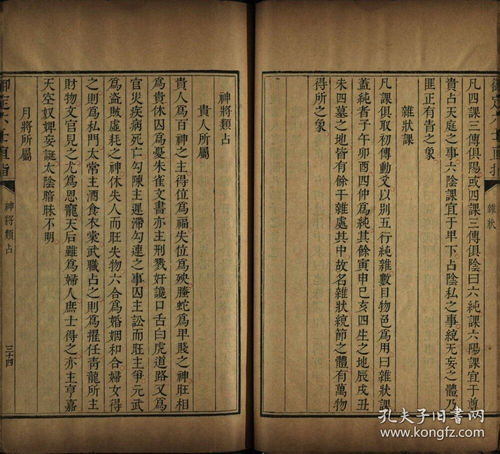 凡四課三傳俱陽或四課三傳俱陰曰六純課六陽課宜于尊
貴占天庭之事六陰課宜于卑下占陰私之事統无妄之體乃
匪正有眚之象
雜狀課
凡課俱取初傳動爻以別五行純雜數目物色爲用曰雜狀課
蓋純者子午卯酉四仲爲純其餘寅申巳亥四生之地辰戌丑
未四墓之地皆有餘干雜處其中故名雜狀統節之體有萬物
得所之象
雜狀
神將類占
貴人所屬
貴人爲百神之主得位爲福失位爲殃螣蛇爲卑賤之神旺相
爲貴休囚爲憂朱雀文書亦主刑戮奸讒口舌白虎道路又爲
官災疾病死亡勾陳主遲滯勾連之事囚主訟而旺主爭元武
爲盜賊虛耗之神休失人而旺失物六合爲婚姻和合婦女得
之則爲私門太常主酒食衣裳武職占之則爲擢任青龍所主
財物文官見之尤爲恩寵天后雖爲婦人庶士得之亦主亨嘉
天空奴婢妄誕太陰暗昧不明
月將所屬
御定六壬直指
神將類占
三十四
孔夫子旧书网
www.kongfz.com